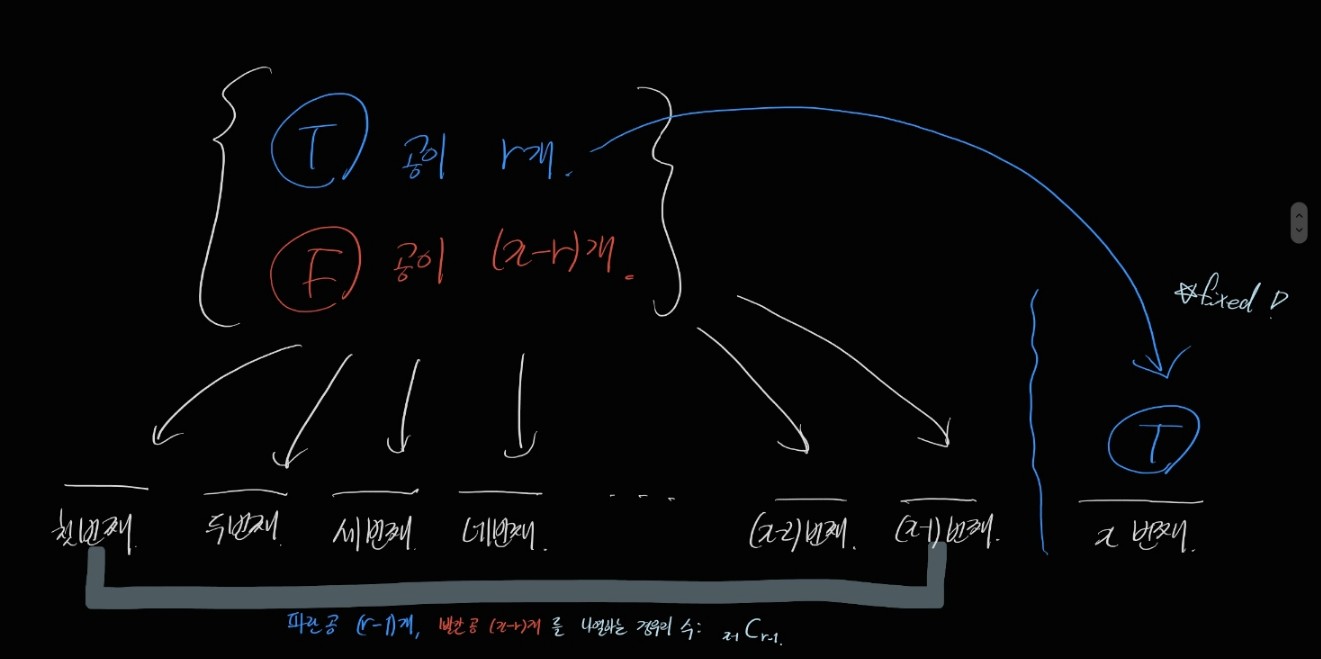 T 공이 r개.
F 공이 (x-r)개.
☆fixed!
T
첫번째. 두번째. 세번째. 네번째. ... (x-2)번째. (x-1)번째. x 번째.
파란공 (r-1)개, 빨간공 (x-r)개 를 나열하는 경우의 수: x-1Cr-1.